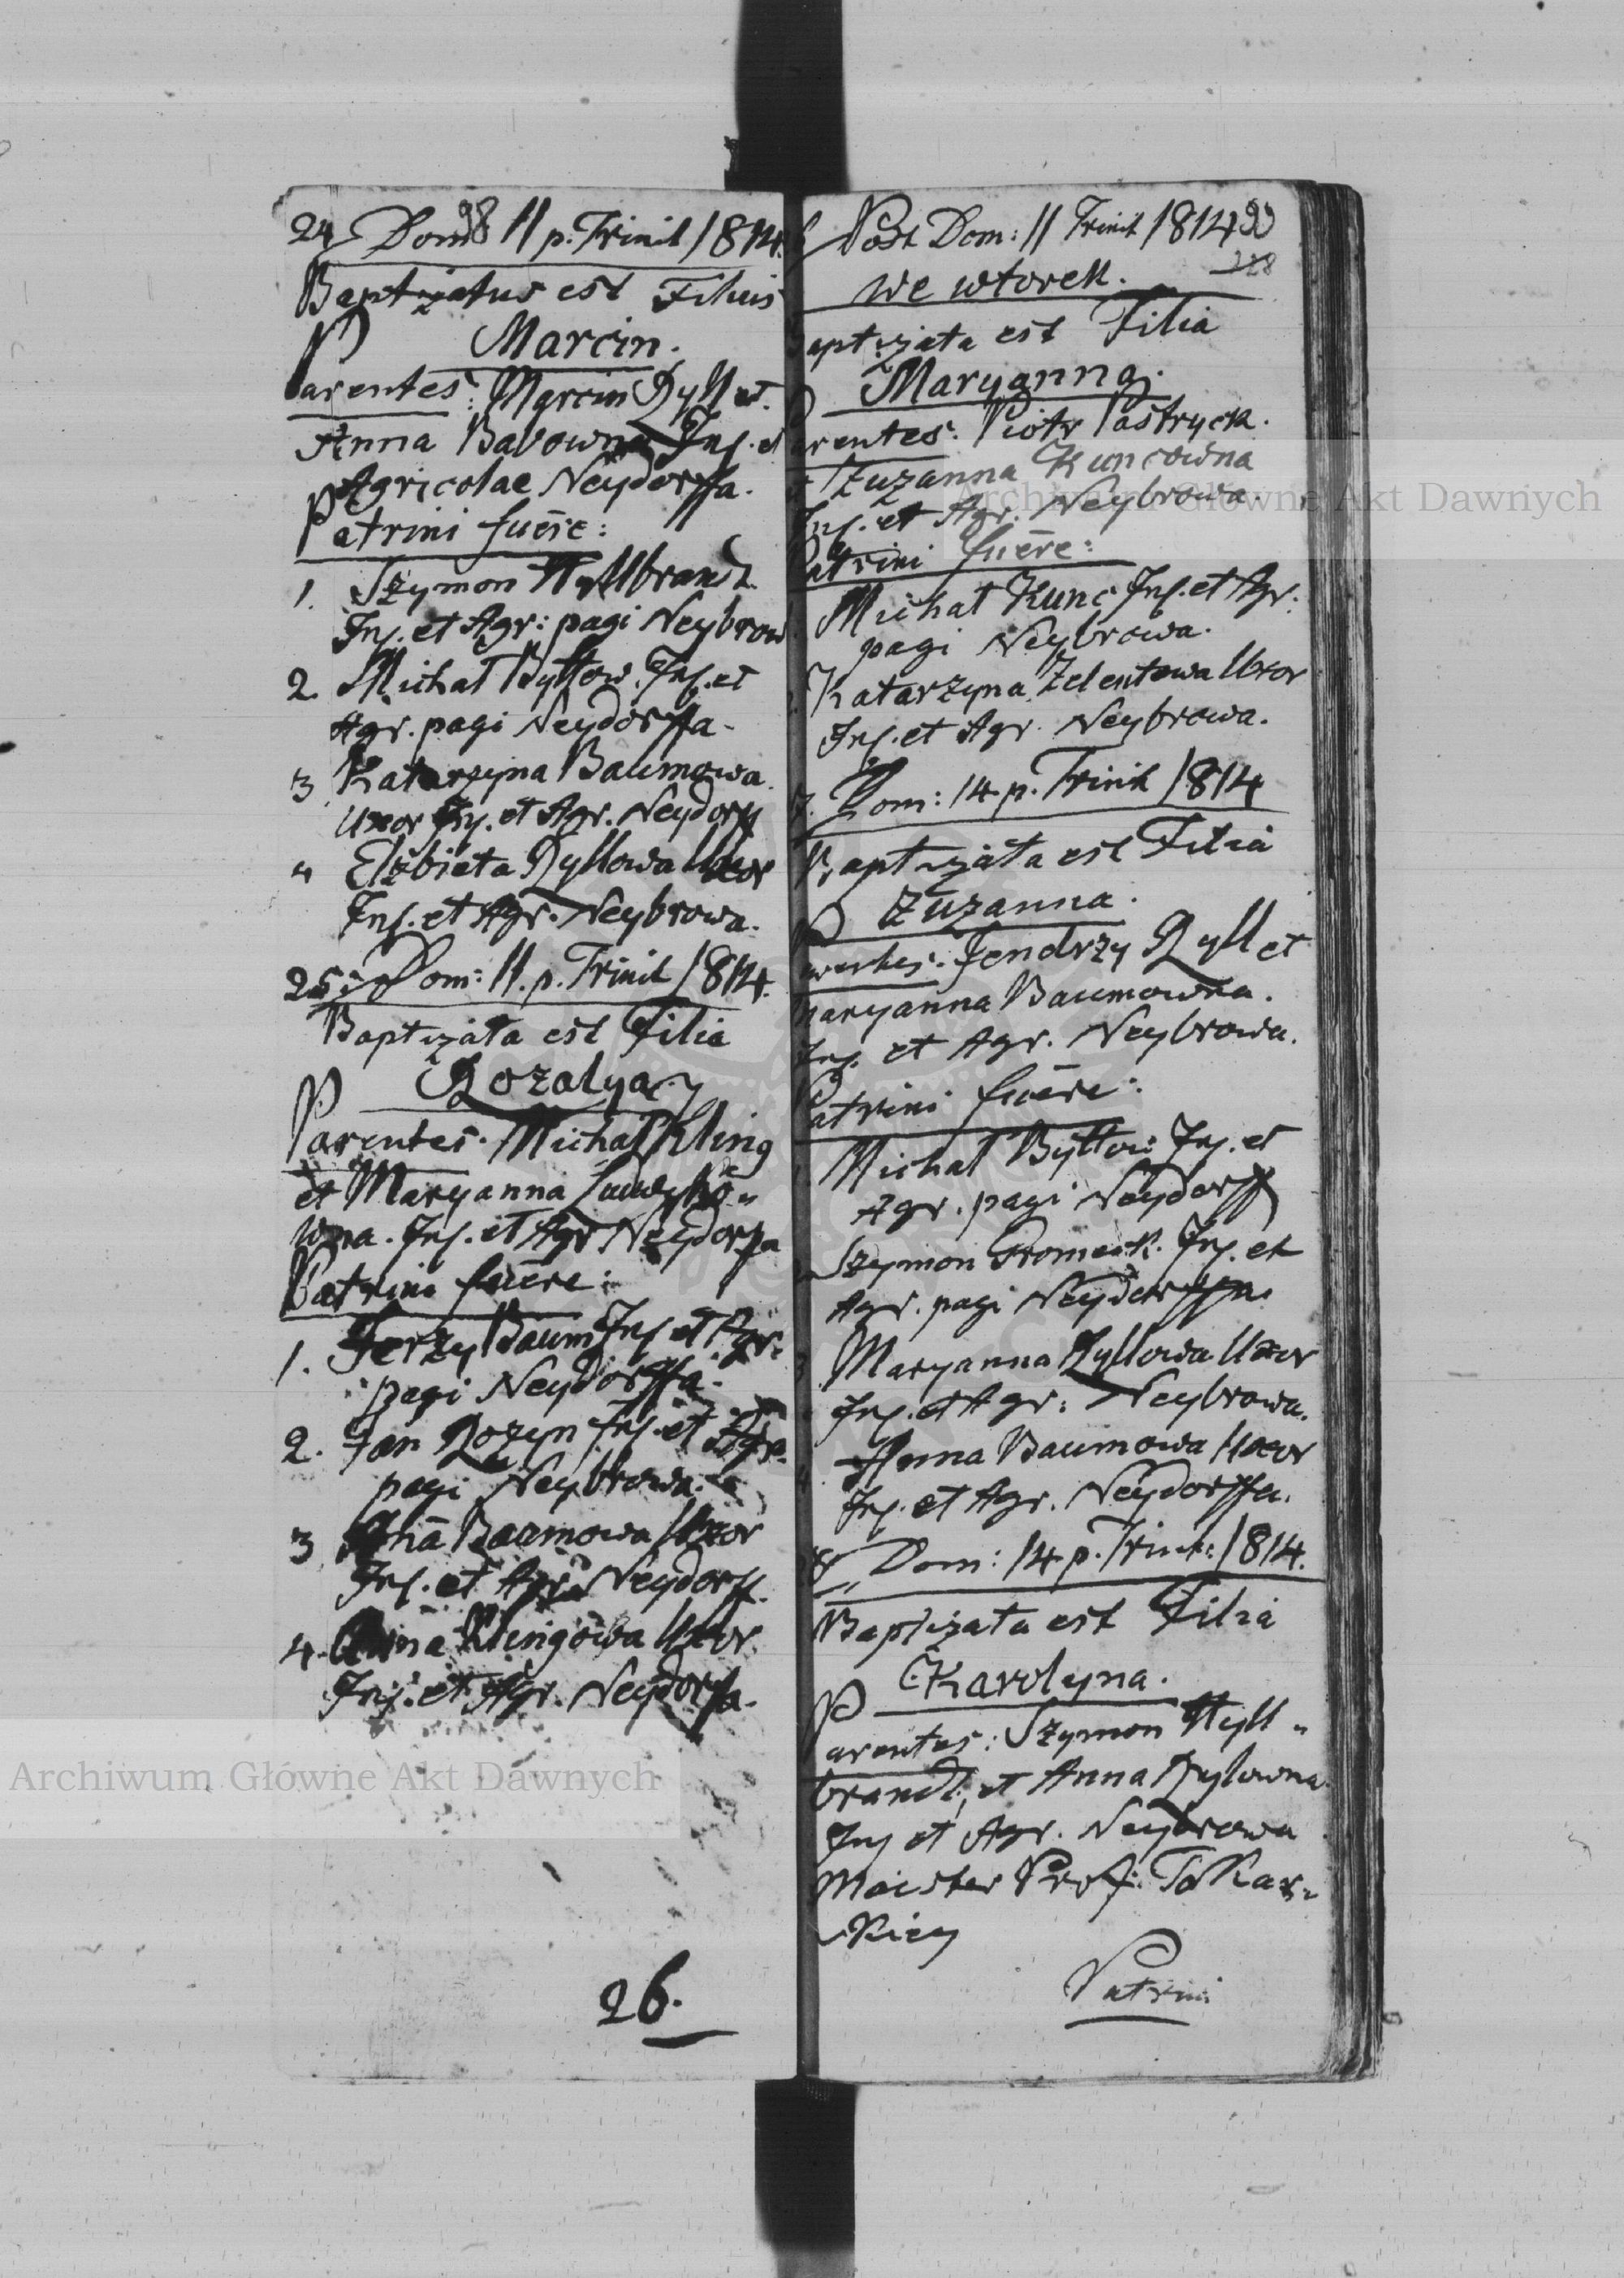 24 Dom 11 p. Trinit 1814.
98
Baptizatus est Filius
Marcin.
Parentes: Marcin Ryll et
Anna Babowna Inq. et
Agricolae Neydorffa.
Patrini fuere:
1. Szymon Hyllbrandt
Inq. et Agr: pagi Neybrow
2 Michał Byttow. Inq. et
Agr. pagi Neydorffa.
3 Katarzyna Baumowa
uxor Inq. et Agr. Neydorff
4 Elżbieta Ryllowa Uxor
Inq. et Agr. Neybrowa.
25 Dom: 11. p. Trinit 1814.
Baptizata est Filia
Rozalya
Parentes. Michał Kling
et Maryanna
wna. Inq. et Agr Neydorffa
Patrini fuere:
1. Jerzy Baum Inq et Agr.
pagi Neydorffa.
2. Jan Rozyn Inq. et Agr.
pagi Neybrowa.
3 Aña Baumowa Uxor
Inq. et Agr. Neydorff.
4. Anna Klingowa Uxor
Inq. et Agr. Neydorffa.
26.
Post Dom: 11 Trinit 1814
we wtorek.
aptizata est Filia
Maryanna.
Parentes: Piotr Pastryck.
et Zuzanna Kuncowna
Inq. et Agr. Neybrowa.
Patrini fuere:
Michał Kunc Inq. et Agr.
pagi Neybrowa.
Katarzyna Zelentowa Uxor
Inq. et Agr. Neybrowa.
7. Dom: 14 p. Trinit 1814
Baptizata est Filia
Zuzanna.
Parentes: Jendrzy Ryll et
Maryanna Baumowna.
Inq. et Agr. Neybrowa.
Patrini fuere:
Michał Byttow Inq. et
Agr. pagi Neydorff
Szymon Gromek. Inq. et
Agr. pagi
3 Maryanna Ryllowa Uxor
Inq. et Agr: Neybrowa.
4 Anna Baumowa Uxor
Inq. et Agr. Neydorffa.
8 Dom: 14 p. Trinit: 1814.
Baptizata est Filia
Karolyna.
Parentes: Szymon Hyll=
brandt, et Anna Rylowna
Inq et Agr. Neybrowa
Maister Prof: Tokar=
skiey
Patrini
Archiwum Główne Akt Dawnych
Archiwum Główne Akt Dawnych